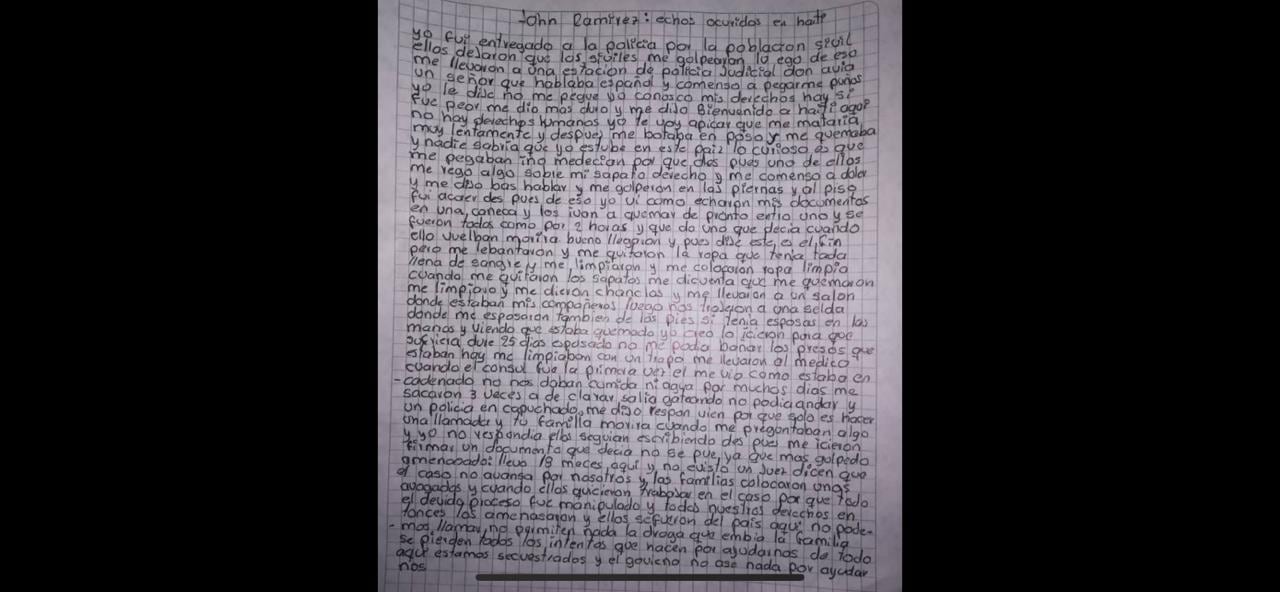 John Ramirez: echos ocurridos en haiti
yo fui entregado a la policia por la poblacion sivil
ellos dejaron que los siviles me golpearan lo ego de eso
me llevaron a una estacion de policia Judicial don avia
un señor que hablaba español y comenso a pegarme puños
yo le dije no me pegue yo conosco mis derechos hay si
fue peor me dio mas duro y me dijo Bienvenido a haiti aqui
no hay derechos humanos yo te voy apicar que me mataria
muy lentamente y despues me botaba en poso y me quemaba
y nadie sabria que yo estube en este paiz lo curioso es que
me pegaban ino medecian por que des pues uno de ellos
me rego algo sobre mi sapato derecho y me comenso a doler
y me dijo bas hablar y me golperon en las piernas y al piso
fui acaer des pues de eso yo vi como echaron mis documentos
en una caneca y los ivan a quemar de pronto entro uno y se
fueron todos como por 2 horas y que do uno que decia cuando
ello vuelban morira bueno llegaron y pues dije este es el fin
pero me lebantaron y me quitaron la ropa que tenia toda
llena de sangre y me limpiaron y me colocaron ropa limpia
cuando me quitaron los sapatos me dicuenta que me quemaron
me limpiaro y me dieron chanclas y me llevaron a un salon
donde estaban mis compañeros luego nos trajeron a una selda
donde me esposaron tambien de los pies si tenia esposas en las
manos y viendo que estaba quemado yo creo lo icieron para que
sufriera dure 25 dias esposado no me podia bañar los presos que
estaban hay me limpiaban con un trapo me llevaron al medico
cuando el consul fue la primera vez el me vio como estaba en
-cadenado no nos daban cumida ni agua por muchos dias me
sacaron 3 veces a de clarar salia gateando no podia andar y
un policia en capuchado me dijo respon vien por que solo es hacer
una llamada y tu familla morira cuando me pregontaban algo
y yo no respondia ellos seguian escribiendo des pues me icieron
firmar un documento que decia no se pue ya que mas golpedo
amenasado: llevo 18 meces aqui y no evisto un Juez dicen que
el caso no avansa por nosotros y las familias colocaron unos
avogados y cuando ellos quicieron trabajar en el caso por que todo
el devido proceso fue manipulado y todos nuestros derechos en
tonces los amenasaron y ellos se fueron del pais aqui no pode-
-mos llamar no permiten nada la droga que embia la familia
se pierden todos los intentos que hacen por ayudarnos de todo
aqui estamos secuestrados y el govierno no ase nada por ayudar
nos